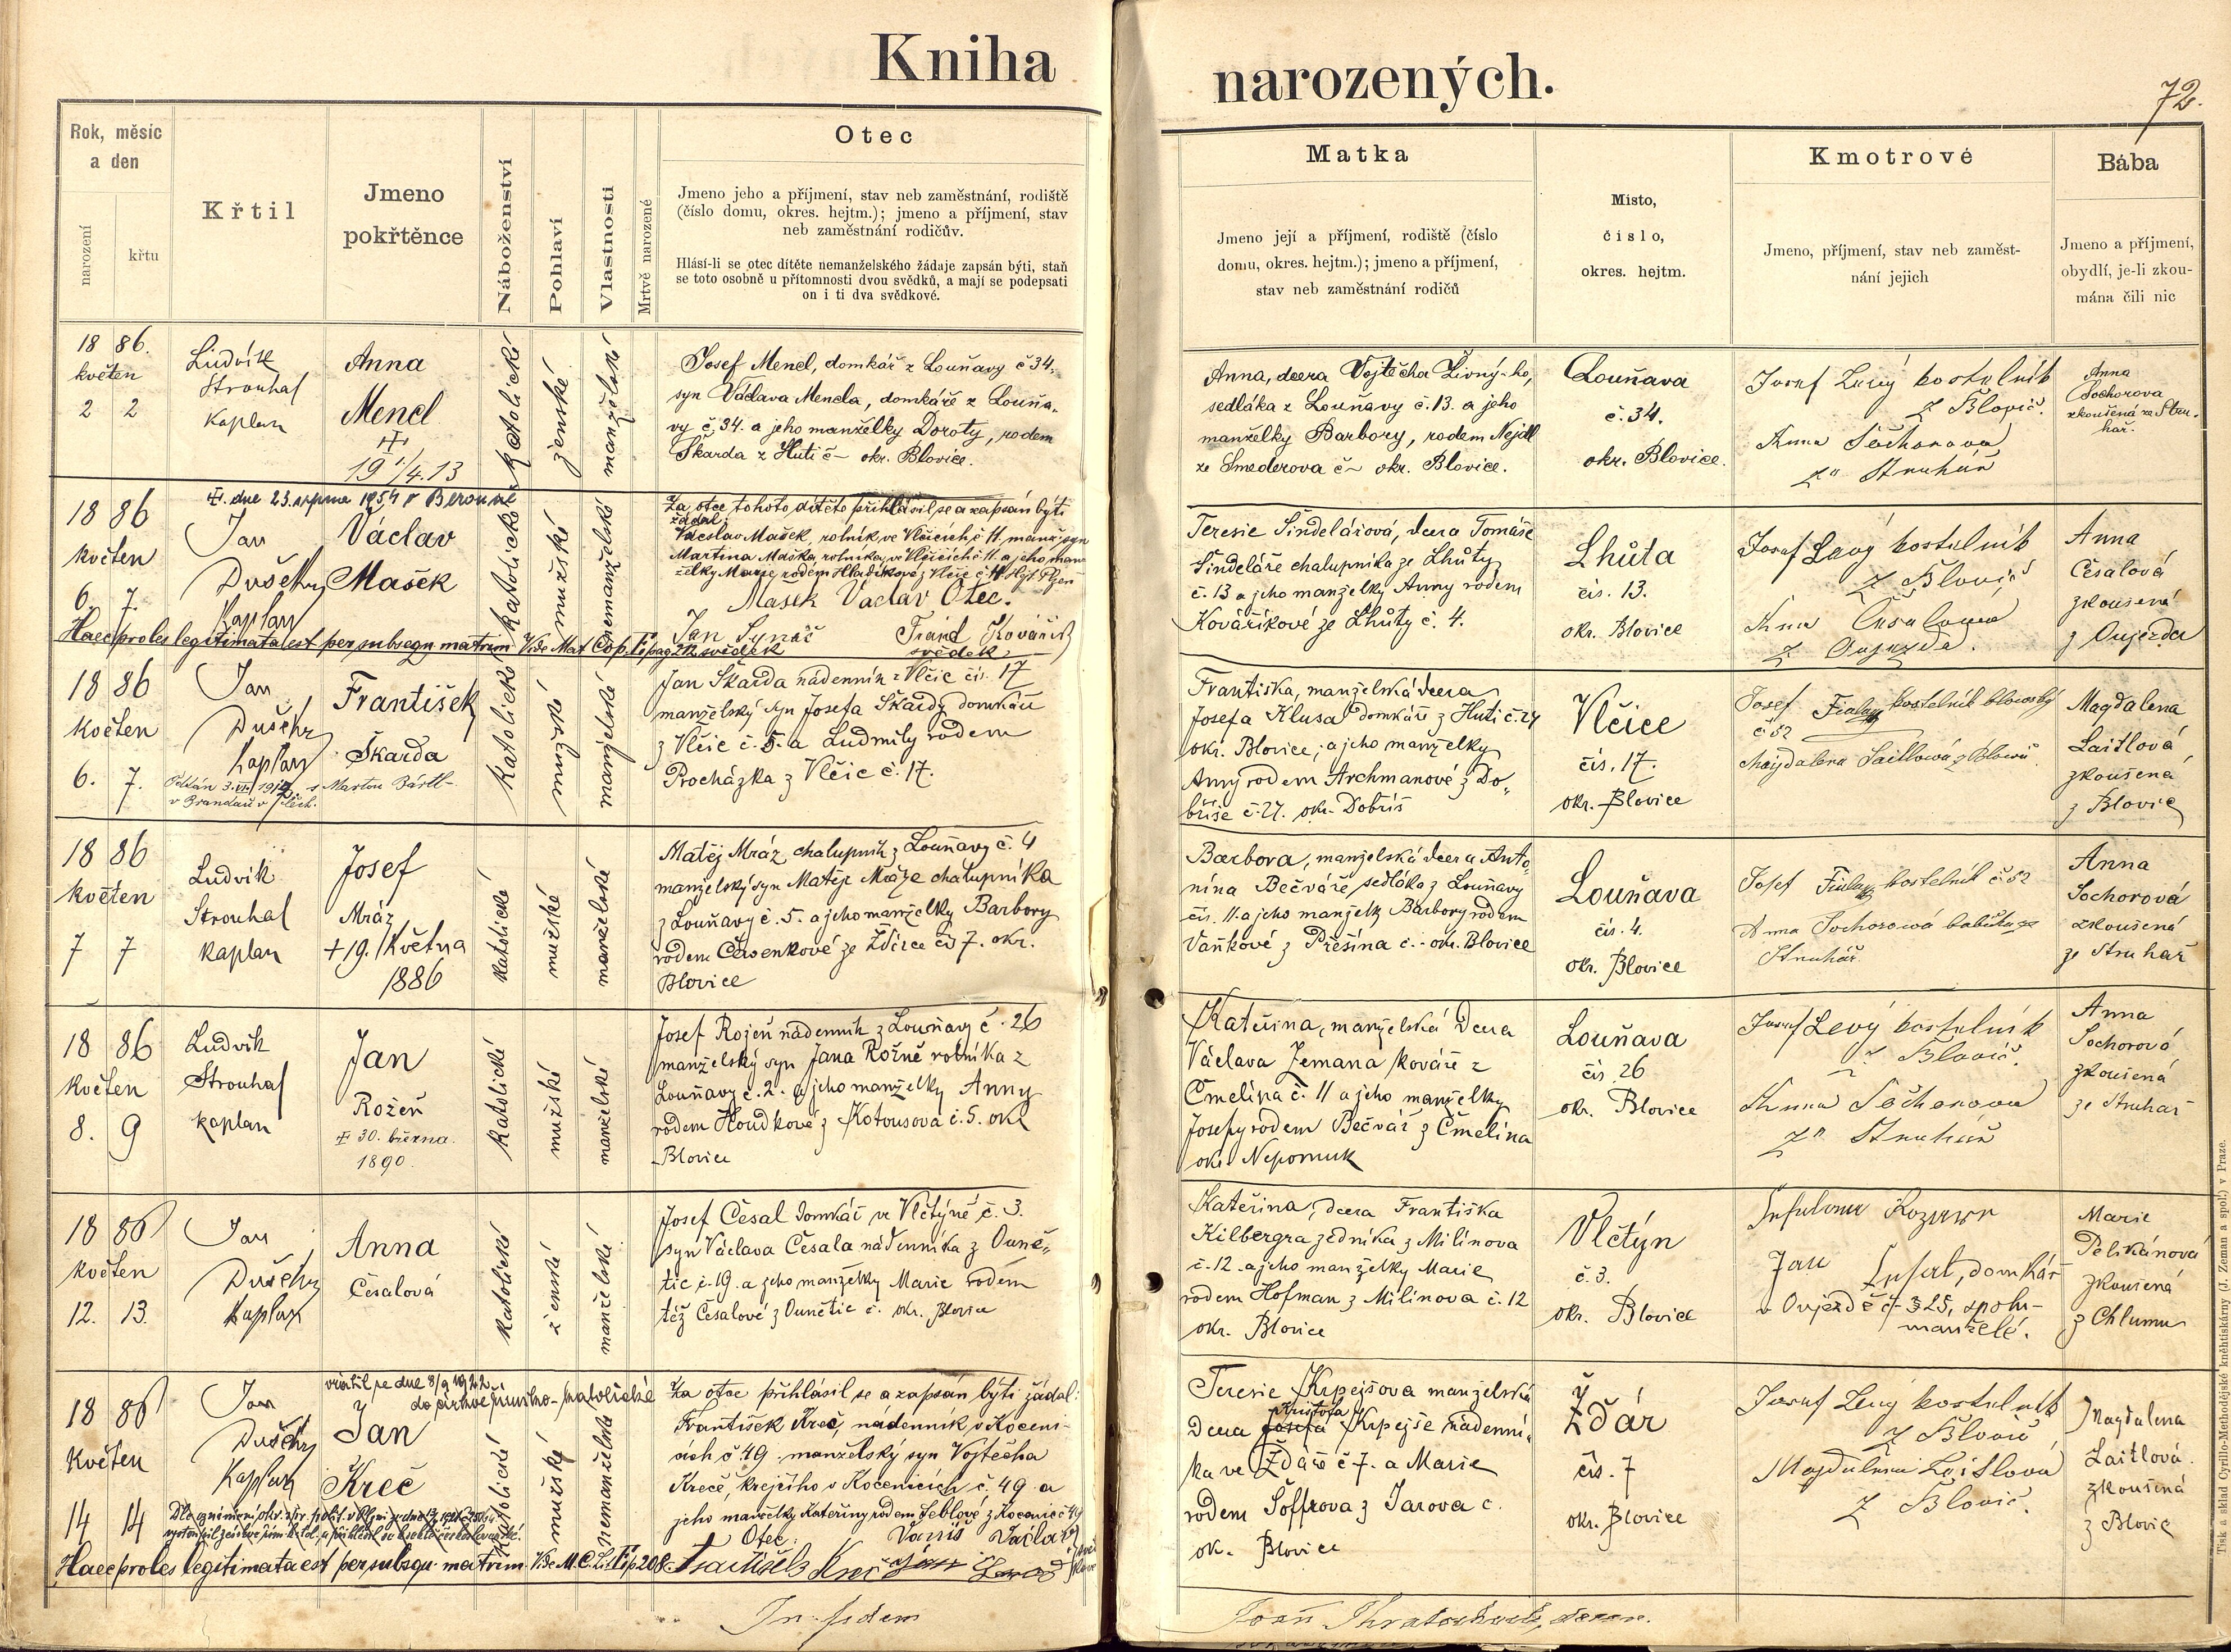 Kniha narozených.
72.
Rok, měsíc
a den
narození
křtu
Křtil
Jmeno
pokřtěnce
Náboženství
Pohlaví
Vlastnosti
Mrtvě narozené
Otec
Jmeno jeho a příjmení, stav neb zaměstnání, rodiště
(číslo domu, okres. hejtm.); jmeno a příjmení, stav
neb zaměstnání rodičův.
Hlásí-li se otec dítěte nemanželského žádaje zapsán býti, staň
se toto osobně u přítomnosti dvou svědků, a mají se podepsati
on i ti dva svědkové.
Matka
Jmeno její a příjmení, rodiště (číslo
domu, okres. hejtm.); jmeno a příjmení,
stav neb zaměstnání rodičů
Místo,
číslo,
okres. hejtm.
Kmotrové
Jmeno, příjmení, stav neb zaměst-
nání jejich
Bába
Jmeno a příjmení,
obydlí, je-li zkou-
mána čili nic
18 86.
květen
2 2
Ludvík
Strouhal
kaplan
Anna
Mencl
19 1/4.13
katolické
ženské
manželské
Josef Mencl, domkář z Louňavy č 34.
syn Václava Mencla, domkáře z Louňa-
vy č. 34. a jeho manželky Doroty, rodem
Škarda z Hutí č – okr. Blovice.
Anna, dcera Vojtěcha Živný-ho,
sedláka z Louňavy č. 13. a jeho
manželky Barbory, rodem Nejdl
ze Smederova č – okr. Blovice.
Louňava
č. 34.
okr. Blovice.
Josef Levý kostelník
z Blovic.
Anna Sochorova
ze Struhař
Anna
Sochorova
zkoušená ze Stru-
hař.
dne 23. srpna 1954 v Berouně
18 86
květen
6. 7.
Jan
Dušek
Kaplan
Václav
Mašek
katolické
mužské
nemanželské
Za otce tohoto dítěte přihlásil se a zapsán býti
žádal:
Václav Mašek, rolník, ve Vlčicích č 11. manž. syn
Martina Maška, rolníka, ve Vlčicích č. 11. a jeho man-
želky Marie rodem Hladíkové z Vlčic č. 11. Hejt. Plzeň
Mašek Václav Otec.
Jan Synáč Frand Kovářík
svědek svědek
Haec proles legitimata est per subsequ matrim Vide Mat. Cop.
Teresie Šindelářová, dcera Tomáše
Šindeláře chalupníka ze Lhůty
č. 13 a jeho manželky Anny rodem
Kováříkové ze Lhůty č. 4.
Lhůta
čís. 13.
okr. Blovice
Josef Levý kostelník
z Blovic
Anna Česalova
z Oujezda.
Anna
Česalová
zkoušená
z Oujezda
18 86
květen
6. 7.
Jan
Dušek
kaplan
František
Škarda
katolické
mužské
manželské
Jan Škarda nádenník z Vlčic čís. 17
manželský syn Josefa Škardy domkáře
z Vlčic č. 5. a Ludmily rodem
Procházka z Vlčic č. 17.
Františka, manželská dcera
Josefa Klusa domkáře z Hutí č. 24
okr. Blovice; a jeho manželky
Anny rodem Archmanové z Do-
bříše č. 27. okr. Dobříš
Vlčice
čís. 17.
okr. Blovice
Josef Fiala kostelník blovický
č 52
Magdalena Laitlová z Blovic
Magdalena
Laitlová
zkoušená
z Blovic
18 86
květen
7 7
Ludvík
Strouhal
kaplan
Josef
Mráz
+ 19. Května
1886
katolické
mužské
manželské
Matěj Mráz, chalupník z Louňavy č. 4
manželský syn Matěje Mráze chalupníka
z Louňavy č. 5. a jeho manželky Barbory
rodem Čersenkové ze Ždírce čís 7. okr.
Blovice
Barbora, manželská dcera Anto-
nína Bečváře sedláka z Louňavy
čís. 11. a jeho manželky Barbory rodem
Vaňkové z Přešína č. – okr. Blovice
Louňava
čís. 4.
okr. Blovice
Josef Fiala kostelník č 52
Anna Sochorová babička ze
Struhař
Anna
Sochorová
zkoušená
ze Struhař
18 86
květen
8. 9
Ludvík
Strouhal
kaplan
Jan
Rožeň
30. března.
1890.
katolické
mužské
manželské
Josef Rožeň nádenník z Louňavy č. 26
manželský syn Jana Rožně rolníka z
Louňavy č. 2. a jeho manželky Anny
rodem Houdkové z Kotousova č. 5. okr.
Blovice
Kateřina, manželská dcera
Václava Zemana kováře z
Čmelína č. 11 a jeho manželky
Josefy rodem Bečvář z Čmelína
okr. Nepomuk
Louňava
čís. 26
okr. Blovice
Josef Levý kostelník
z Blovic.
Anna Sochorova
ze Struhař
Anna
Sochorová
zkoušená
ze Struhař
18 86
květen
12. 13.
Jan
Dušek
kaplan
Anna
Česalová
katolické
ženské
manželské
Josef Česal domkář ve Vlčtýně č. 3.
syn Václava Česala nádenníka z Ouně-
tic č. 19. a jeho manželky Marie rodem
též Česalové z Ounětic č. okr. Blovice
Kateřina, dcera Františka
Kilbergra zedníka z Milínova
č. 12. a jeho manželky Marie
rodem Hofman z Milínova č. 12
okr. Blovice
Vlčtýn
č. 3.
okr. Blovice
Jan
domkář
v Oujezdě č. 25,
manželé.
Marie
Pelikánová
zkoušená
z Chlumu
vrátil se dne 8/9 1942
do církve římsko-katolické
18 86
květen
14 14
Jan
Dušek
Kaplan
Jan
Kreč
katolické
mužské
nemanželské
Za otce přihlásil se a zapsán býti žádal:
František Kreč, nádenník v Kocenicích
č. 49. manželský syn Vojtěcha
Kreče, krejčího v Kocenicích č. 49 a
jeho manželky Kateřiny rodem Šeblové z Kocenic č 49
Otec:
František Kreč
Haec proles legitimata est per subsequ. matrim.
Teresie Krpejšova manželská
dcera Josefa Kristofa Krpejše nádenní-
ka ve Ždáře č 7. a Marie
rodem Šoffrova z Jarova č.
ok. Blovice
Ždár
čís. 7
okr. Blovice
Josef Levý kostelník
z Blovic
Magdalena Laitlová
z Blovic.
Magdalena
Laitlová.
zkoušená
z Blovic
In fidem
Tisk a sklad Cyrillo-Methodějské knihtiskárny (J. Zeman a spol.) v Praze.